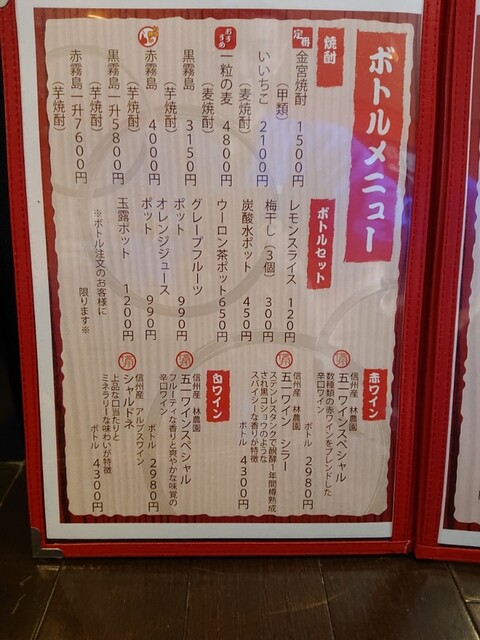 ボトルメニュー
焼酎
定番
金宮焼酎 1500円
(甲類)
いいちこ 2100円
(麦焼酎)
おすすめ
一粒の麦 4800円
(麦焼酎)
黒霧島 3150円
(芋焼酎)
赤霧島 4000円
(芋焼酎)
黒霧島一升5800円
(芋焼酎)
赤霧島一升7600円
(芋焼酎)
ボトルセット
レモンスライス 120円
梅干し(3個) 300円
炭酸水ポット 450円
ウーロン茶ポット650円
グレープフルーツ
ポット 990円
オレンジジュース
ポット 990円
玉露ポット 1200円
※ボトル注文のお客様に
限ります※
赤ワイン
信州産 林農園
五一ワインスペシャル
数種類の赤ワインをブレンドした
辛口ワイン
ボトル 2980円
信州産 林農園
五一ワイン シラー
ステンレスタンクで醗酵1年間樽熟成
され黒コショウのような
スパイシーな香りが特徴
ボトル 4300円
白ワイン
信州産 林農園
五一ワインスペシャル
フルーティな香りと爽やかな味覚の
辛口ワイン
ボトル 2980円
信州産 アルプスワイン
シャルドネ
上品な口当たりと
ミネラリーな味わいが特徴
ボトル 4300円